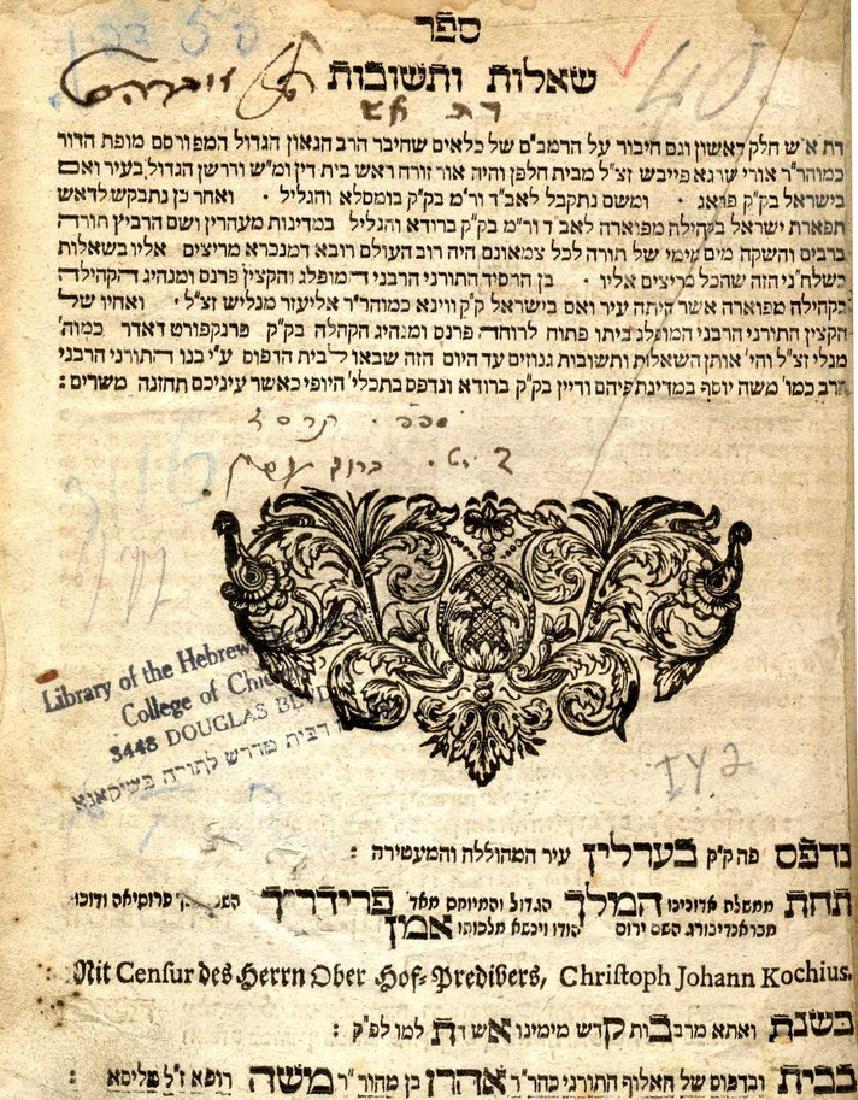 ספר
שאלות ותשובות
דת אש
דת א״ש חלק ראשון וגם חיבור על הרמב״ם של כלאים שחיבר הרב הגאון הגדול המפורסם מופת הדור
כמוהר״ר אורי שרגא פייבש זצ״ל מבית חלפן והיה אור זורח ראש בית דין ומ״ש ודרשן הגדול בעיר ואם
בישראל בק״ק פראג ׃ ומשם נתקבל לאב״ד ור״מ בק״ק בומסלא והגליל ׃ ואחר כן נתבקש לראש
תפארת ישראל בקהילה מפוארה לאב״ד ור״מ בק״ק ברודא והגליל במדינות מעהרין ושם הרביץ תורה
ברבים והשקה מים מימי של תורה לכל צמאונם היה רוב העולם רובא דמנכרא מריצים אליו בשאלות
כשלחני הזה שהכל מריצים אליו ׃ בן הרסיד התורני הרבני המופלג והקצין פרנס ומנהיג דהקהילה
בקהילה מפוארה אשר היתה עיר ואם בישראל ק״ק ווינא כמוהר״ר אליעזר מנליש זצ״ל ׃ ואחיו של
הקצין התורני הרבני המופלג ביתו פתוח לרוחה פרנס ומנהיג הקהלה בק״ק פרנקפורט דאדר כמוה׳
מנלי זצ״ל והי׳ אותן השאלות ותשובות גנוזים עד היום הזה שבאו לבית הדפוס ע״י בנו התורני הרבני
הרב כמו׳ משה יוסף במדינת פיהם ודיין בק״ק ברודא ונדפס בתכלי׳ היופי כאשר עיניכם תחזנה משרים׃
40
116
Library of the Hebrew
College of Chi
3448 DOUGLAS BLVD
דבית מדרש לתורה בשיקאגא
142
נדפס פה ק״ק בערלין עיר המהוללת והמעטירה ׃
תחת ממשלת אדונינו המלך הגדול והמיוחס מאד פרידריך פרוסיאה ודוכו
מבראנדינבורג השם ירום הודו וינשא מלכותו אמן
Mit Censur des Herrn Ober Hof-Predibers, Christoph Johann Kochius.
בשנת ואתא מרבבות קדש מימינו אש דת למו לפ״ק ׃
בבית ובדפוס של האלוף התורני כהר״ר אהרן בן מהור״ר משה רופא ז״ל מליסא ׃